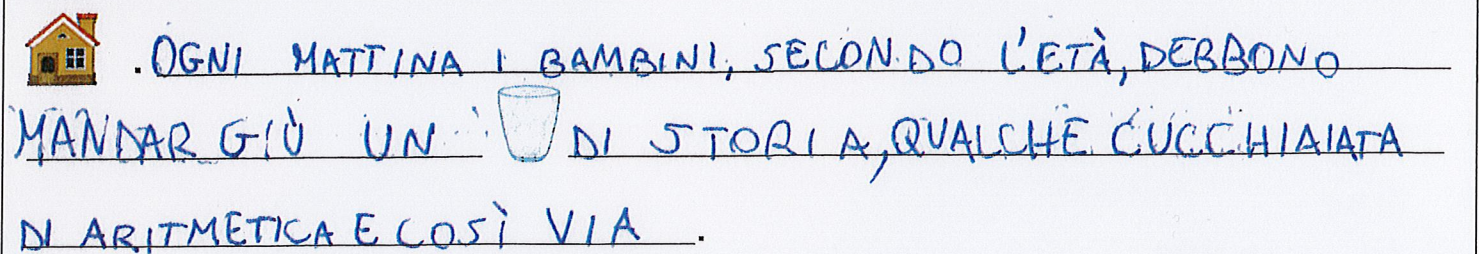 . OGNI MATTINA I BAMBINI, SECONDO L'ETÀ, DEBBONO
MANDAR GIÙ UN DI STORIA, QUALCHE CUCCHIAIATA
DI ARITMETICA E COSÌ VIA .